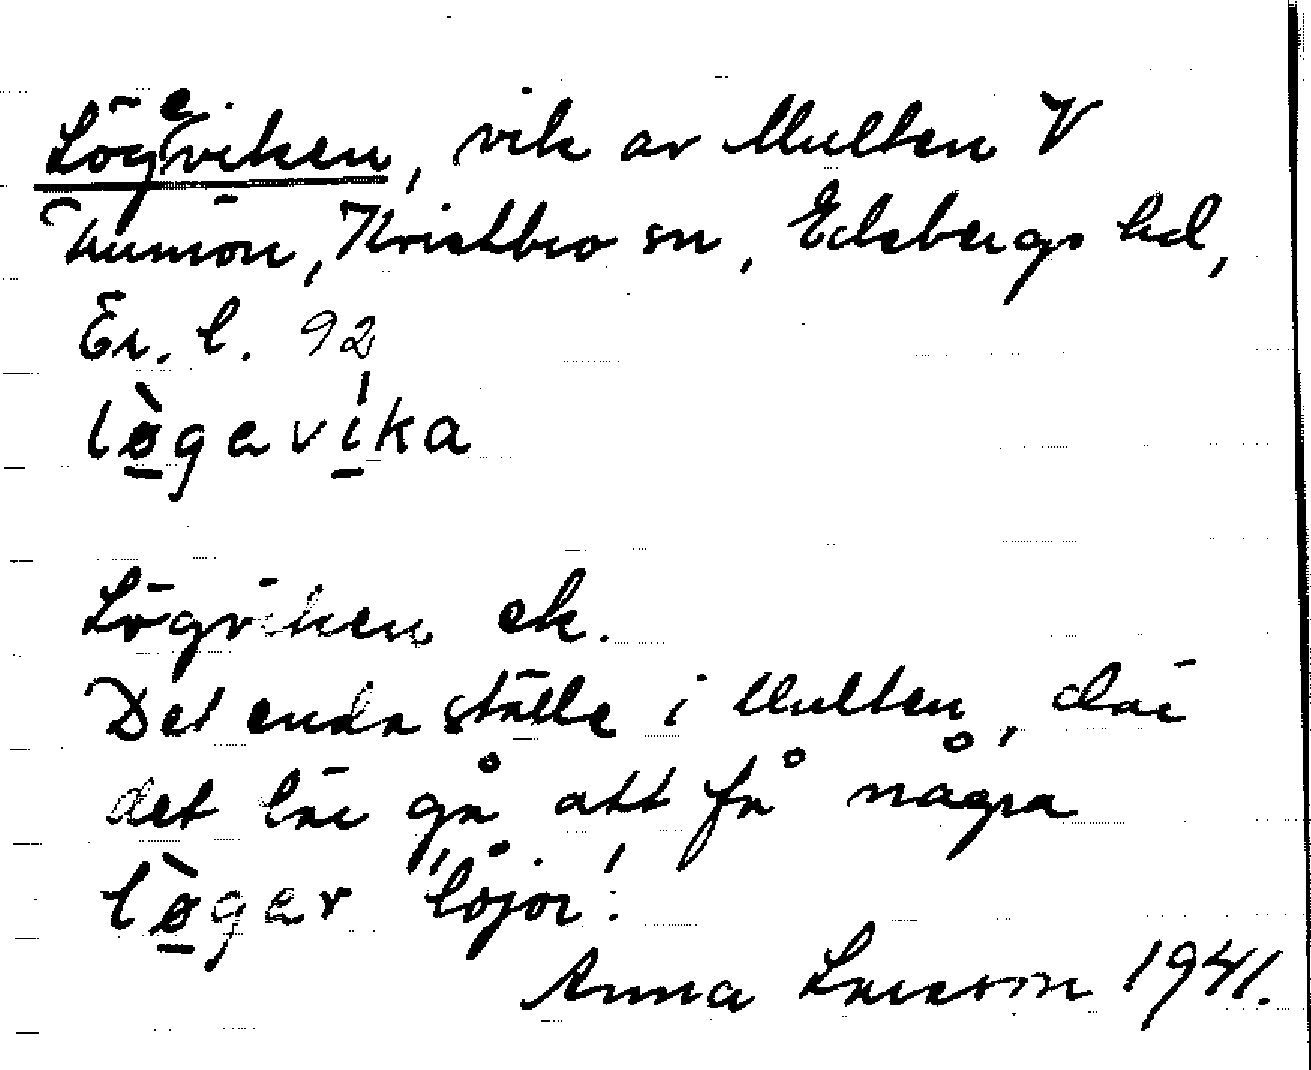 Lögeviken, vik av Multen V
Tunnön, Tivistbro sn, Edsbergs hd,
Er. l. 92
lø̀gavíka
Lögviken ek.
Det enda ställe i Multen, där
det lär gå att få några
lø̀gar 'löjor'.
Anna Larsson 1941.